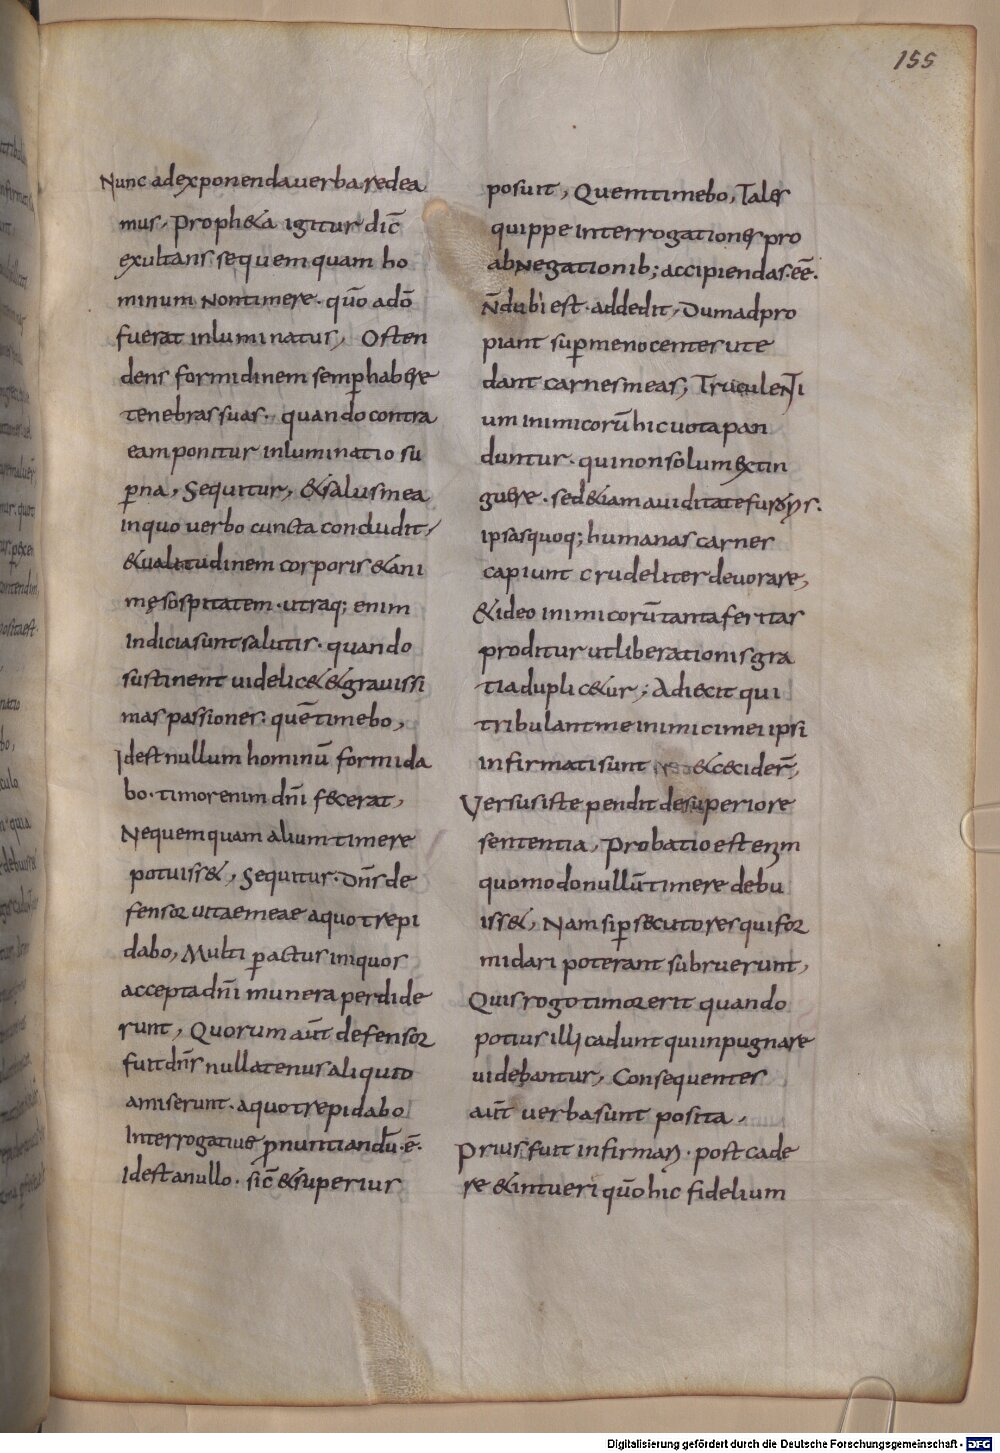 155
Nunc ad exponenda uerba redea
mus, Proph&a igitur dic̄
exultans se quemquam ho
minum Non timere · quō a dō
fuerat inluminatus, Osten
dens formidinem semp̱ habere
tenebras suas · quando contra
eam ponitur inluminatio su
p̱na, Sequitur, & salus mea
in quo uerbo cuncta concludit,
& ualitudinem corporis & ani
mę sospitatem · utraq; enim
Indicia sunt salutis · quando
sustinent uidelic& & grauissi
mas passiones · quē timebo,
Idest nullum hominū formida
bo · timor enim dn̄i fecerat,
Nequemquam alium timere
potuiss&, Sequitur · Dn̄s de
fensor uitae meae a quo trepi
dabo, Multi p̱ actus iniquos
accepta dn̄i munera perdide
runt, Quorum aūt defensor
fuit dn̄s nullatenus aliquid
amiserunt · a quo trepidabo
Interrogatiue p̱nuntiandū · ē ·
Idest a nullo · sic̄ & superius
posuit, Quem timebo, Tales
quippe interrogationes pro
abNegationib; accipiendas · eē ·
N̄ dubi est · addedit, Dum adpro
piant sup̱ me nocentes ut e
dant carnes meas, TruculeNTi
um inimicorū hic uota pan
duntur · qui non solum extin
guere · sed &iam auiditate furoris ·
ipsas quoq; humanas carnes
capiunt crudeliter deuorare,
& ideo inimicorū tanta feritas
proditur ut liberationis gra
tia duplic&ur; Adiecit qui
tribulant me inimici mei ipsi
infirmati sunt & cecider̄,
Versus iste pendit de superiore
sententia, Probatio est enim
quomodo nullū timere debu
iss&, Nam si p̱secutores qui for
midari poterant subruerunt,
Quis rogo timor erit quando
potius illi cadunt qui inpugnare
uidebantur, Consequenter
aūt uerba sunt posita,
Prius fuit infirmari · post cade
re & intueri quō hic fidelium
Digitalisierung gefördert durch die Deutsche Forschungsgemeinschaft - DFG